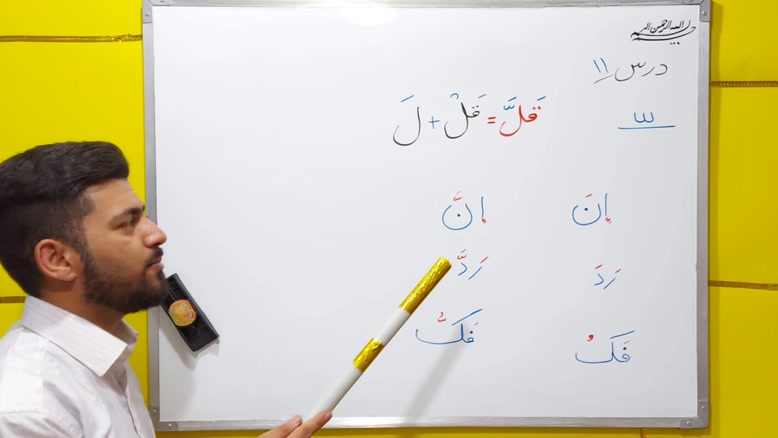 بسم الله الرحمن الرحیم
درس ۱۱
ّ
قَلَّ = قَلْ + لَ
إِنَ إِنَّ
رَدَ رَدَّ
فَکُ فَکُّ